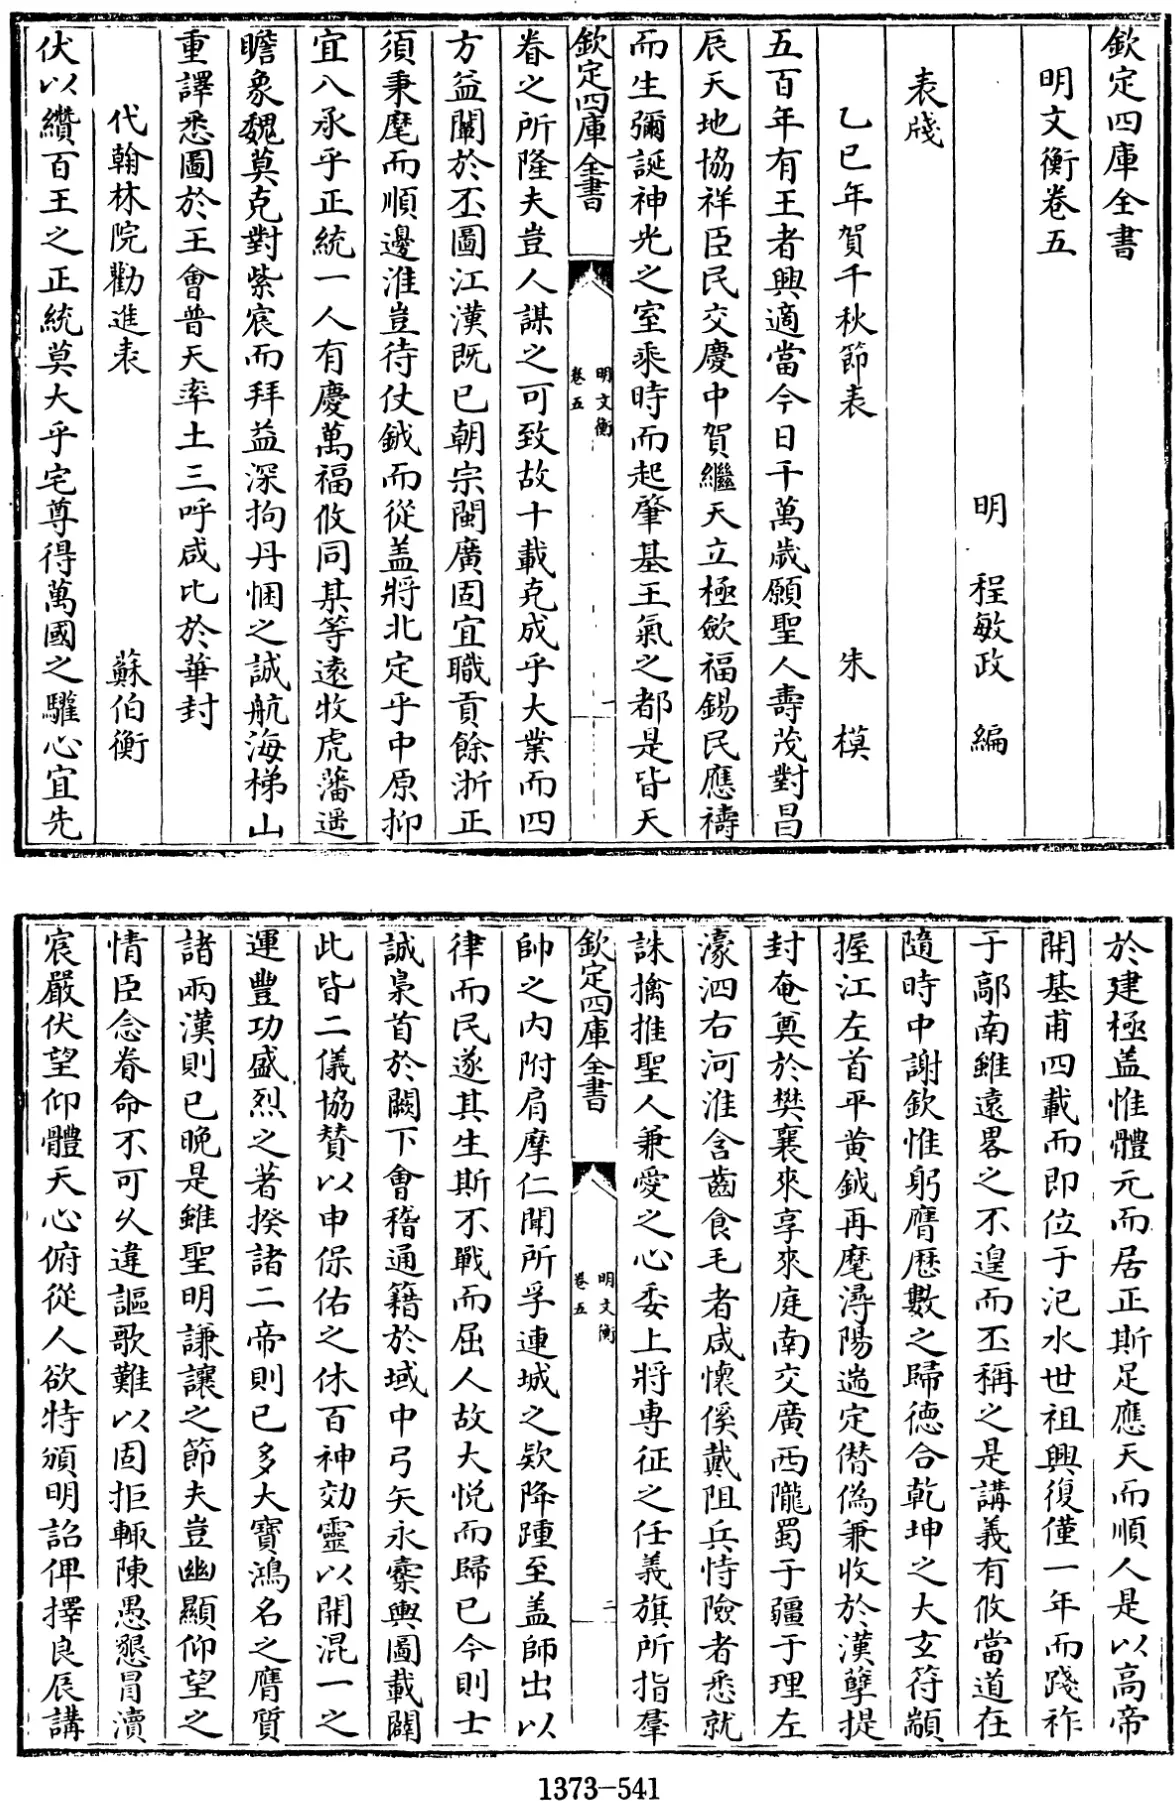 欽定四庫全書
明文衡卷五
明 程敏政 編
表牋
乙巳年賀千秋節表 朱 模
五百年有王者興適當今日千萬歲願聖人壽茂對昌
辰天地協祥臣民交慶中賀繼天立極斂福錫民應禱
而生彌誕神光之室乘時而起肇基王氣之都是皆天
欽定四庫全書
明文衡
卷五
一
眷之所隆夫豈人謀之可致故十載克成乎大業而四
方益闡於丕圖江漢既已朝宗閩廣固宜職貢餘浙正
須秉麾而順邊淮豈待仗鉞而從盖將北定乎中原抑
宜八承乎正統一人有慶萬福攸同某等遠牧虎藩遥
瞻象魏莫克對紫宸而拜益深拘丹悃之誠航海梯山
重譯悉圖於王會普天率土三呼咸比於華封
代翰林院勸進表 蘇伯衡
伏以纘百王之正統莫大乎宅尊得萬國之驩心宜先
於建極盖惟體元而居正斯足應天而順人是以高帝
開基甫四載而即位于汜水世祖興復僅一年而踐祚
于鄗南雖遠畧之不遑而丕稱之是講義有攸當道在
隨時中謝欽惟躬膺厯數之歸徳合乾坤之大玄符顓
握江左首平黄鉞再麾潯陽遄定僣偽兼收於漢孽提
封奄奠於樊襄來享來庭南交廣西隴蜀于疆于理左
濠泗右河淮含齒食毛者咸懷徯戴阻兵恃險者悉就
誅擒推聖人兼愛之心委上將專征之任義旗所指羣
欽定四庫全書
明文衡
卷五
二
帥之内附肩摩仁聞所孚連城之欵降踵至盖師出以
律而民遂其生斯不戰而屈人故大悦而歸已今則士
誠梟首於闕下會稽通籍於域中弓矢永櫜輿圖載闢
此皆二儀協賛以申保佑之休百神効靈以開混一之
運豐功盛烈之著揆諸二帝則已多大寶鴻名之膺質
諸兩漢則已晚是雖聖明謙讓之節夫豈幽顯仰望之
情臣念眷命不可久違謳歌難以固拒輙陳愚懇冒瀆
宸嚴伏望仰體天心俯從人欲特頒明詔俾擇良辰講
1373-541